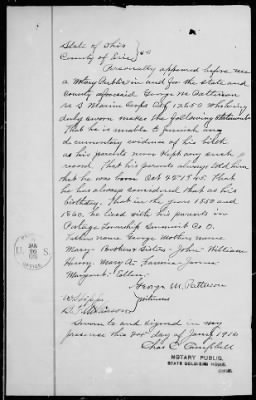 State of Ohio
County of Erie } SS
Personally appeared before me
a Notary Public in and for the state and
county aforesaid George M. Patterson
U S Marine Corps Ctf 12650 who being
duly sworn makes the following statement
That he is unable to furnish any
documentary evidence of his birth
as his parents never kept any such
record. That his parents always told him
that he was born Oct 1845. That
he has always considered that as his
birthday. That in the years 1850 and
1860, he lived with his parents in
Portage Township Summit Co O.
Fathers name George Mothers name
Mary. Brothers Sisters - John - William
Henry. Mary A. Fannie James
Margaret. Ellen.
George M. Patterson
witnesses
Sworn to and signed in my
presence this day of Jany 1916
Chas C Campbell
NOTARY PUBLIC,
STATE SOLDIERS HOME,
OHIO.
U. S.
JAN